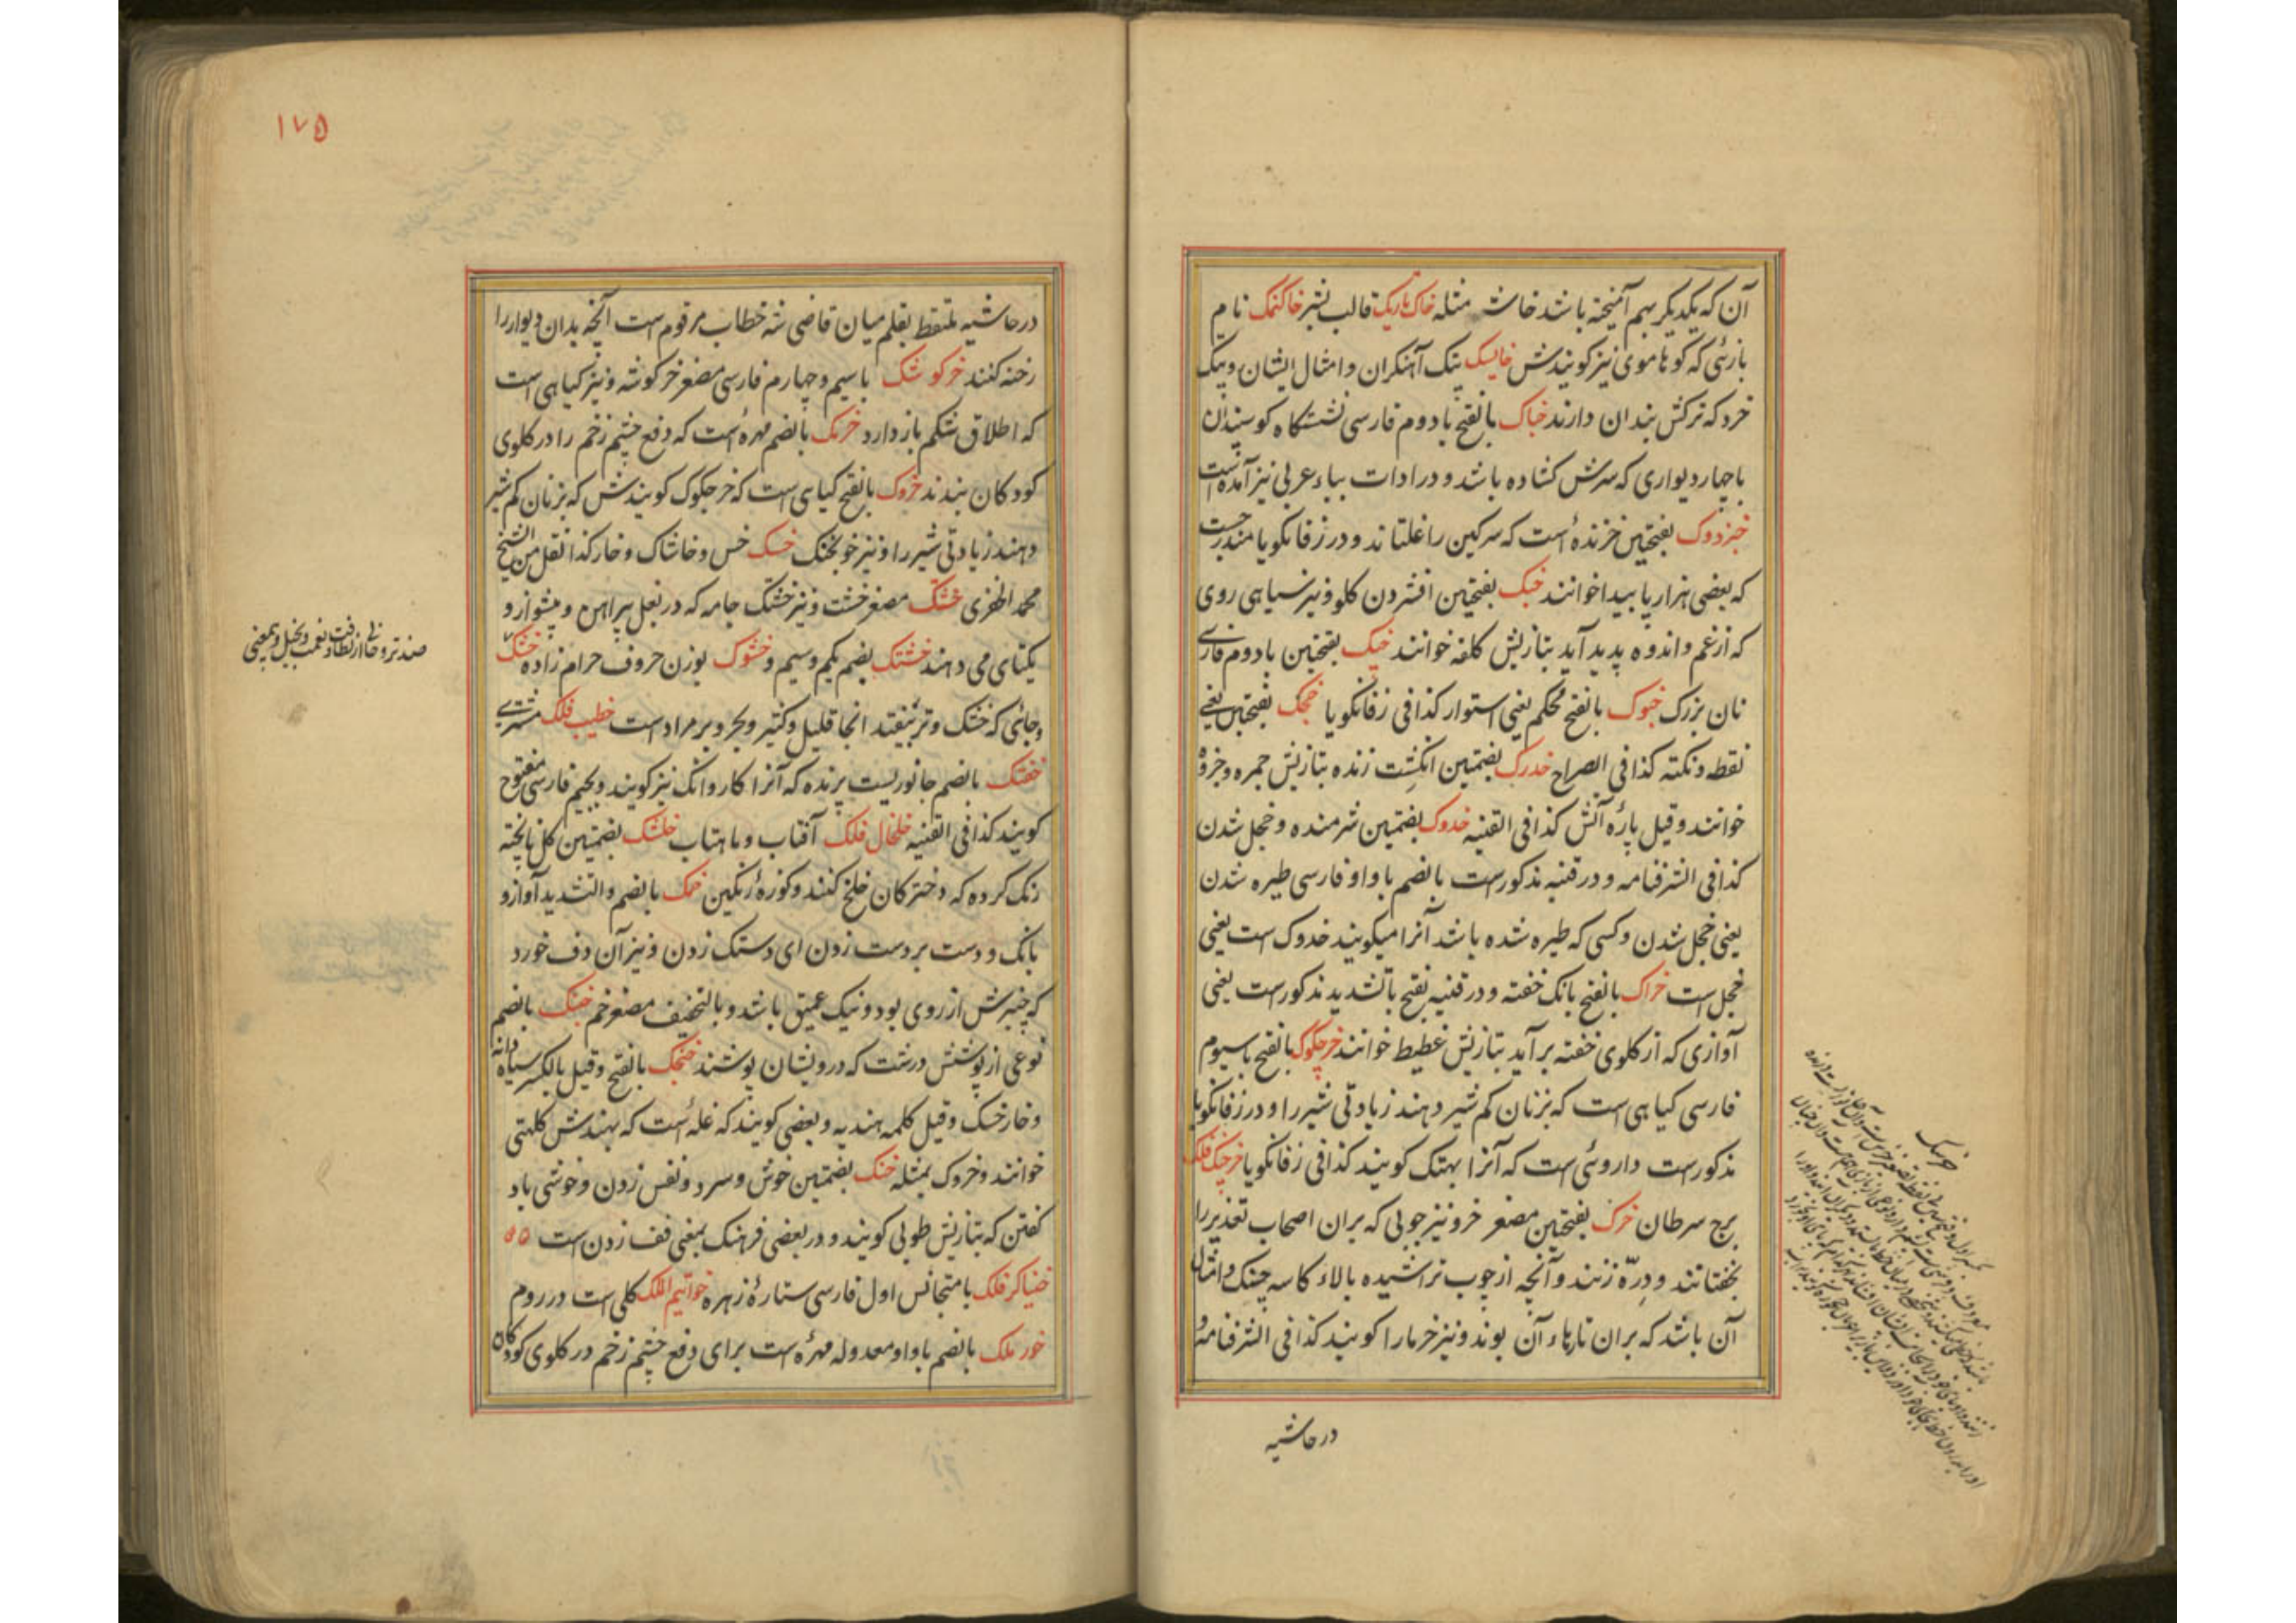 آن که یکدیکر بهم آمیخته باشد خاشه مثله خاک تاریک قالب بشر خاکنمک نام
بازئی که کوهاموی نیز کویندش خایسک پتک آهنکران و امثال ایشان و پتک
خرد که ترکش بندان دارند خباک بالفتح با دوم فارسی نشستکاه کوسپندان
با چهار دیواری که سرش کشاده باشد و در ادات بباء عربی نیز آمده است
خبزدوک بفتحتین خزنده است که سرکین را غلتاند و در زفانکویا مندرجست
که بعضی هزارپا بیدا خوانند خبک بفتحتین افشردن کلو و نیز سیاهی روی
که از غم و اندوه پدید آید بتازیش کلفه خوانند خپک بفتحتین با دوم فارسی
نان بزرک خبوک بالفتح محکم یعنی استوار کذا فی زفانکویا خجک بفتحتین یعنی
نقطه و نکته کذا فی الصراح خدرک بضمتین انکشت زنده بتازیش جمره و جزوه
خوانند و قیل پارهٔ آتش کذا فی القنیه خدوک بضمتین شرمنده و خجل شدن
کذا فی الشرفنامه و در قنیه مذکورست بالضم با واو فارسی طیره شدن
یعنی خجل شدن و کسی که طیره شده باشد آنرا میکویند خدوک است یعنی
خجل است خراک بالفتح بانک خفته و در قنیه بفتح با تشدید مذکورست یعنی
آوازی که از کلوی خفته برآید بتازیش غطیط خوانند خرچکوک بالفتح با سیوم
فارسی کیاهی است که بزنان کم شیر دهند زیادتی شیر را و در زفانکویا
مذکورست داروئی است که آنرا بهتک کویند کذا فی زفانکویا خرچنک فلک
برج سرطان خرک بفتحتین مصغر خر و نیز چوبی که بران اصحاب تعذیر را
بخفتانند و درّه زنند و آنچه از چوب تراشیده بالاء کاسه چنک و امثال
آن باشد که بران تارهاء آن بوند و نیز خرما را کویند کذا فی الشرفنامه و
در حاشیه
خرسک
۱۷۵
در حاشیه ملتقط بقلم میان قاضی شه خطاب مرقوم است آنچه بدان دیوار را
رخنه کنند خرکوشک با سیم و چهارم فارسی مصغر خرکوشه و نیز کیاهی است
که اطلاق شکم باز دارد خرمک بالضم مهره است که دفع چشم زخم را در کلوی
کودکان بندند خروک بالفتح کیاهی است که خرجکوک کویندش که بزنان کم شیر
دهند زیادتی شیر را و نیز خونجنک خسک خس و خاشاک و خار کذا نقل من الشیخ
محمد الخضری خشتک مصغر خشت و نیز خشتک جامه که در بغل پیراهن و پیشواز و
یکتای می دهند خشتک بضم یکم و سیم و خشوک بوزن حروف حرام زاده خشک
و جائی که خشک و تر بیفتد انجا قلیل و کثیر و بحر و بر مراد است خطیب فلک مشتری
خفتک بالضم جانوریست پرنده که آنرا کاروانک نیز کویند و بجیم فارسی مفتوح
کویند کذا فی القنیه خلخال فلک آفتاب و ماهتاب خلشک بضمتین کل ناپخته
رنک کرده که دخترکان خلخ کنند و کوزهٔ رنکین خمک بالضم و التشدید آواز و
بانک و دست بر دست زدن ای دستک زدن و نیز آن دف خورد
که چنبرش از روی بود و نیک عمیق باشد و بالتخفیف مصغر خم خنک بالضم
نوعی از پوشش درشت که درویشان پوشند خنجک بالفتح و قیل بالکسر سیاه دانه
و خار خسک و قیل کلمه هندیه و بعضی کویند که غله است که بهندش کلهتی
خوانند و خروک بمثله خنک بضمتین خوش و سرد و نفس زدن و خوشی باد
کفتن که بتازیش طوبی کویند و در بعضی فرهنک بمعنی فف زدن است
خنیاکر فلک با متجانس اول فارسی ستارهٔ زهره خواتیم الملک کلی است در روم
خورملک بالضم با واو معدوله مهره است برای دفع چشم زخم در کلوی کودکان